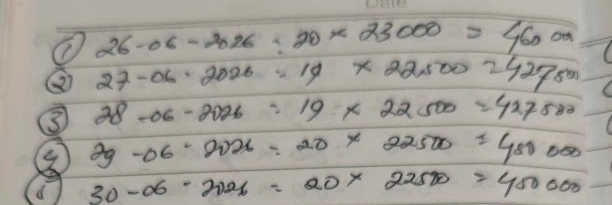 Date
① 26-06-2026 = 20 × 23000 = 460 000
② 27-06-2026 = 19 × 22500 = 427500
③ 28-06-2026 = 19 × 22500 = 427500
④ 29-06-2026 = 20 × 22500 = 450 000
⑤ 30-06-2026 = 20 × 22500 = 450 000